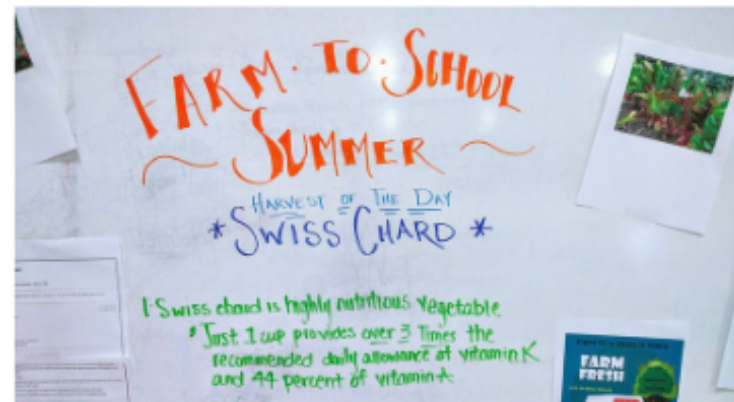 FARM · TO · SCHOOL
~ SUMMER ~
HARVEST OF THE DAY
* SWISS CHARD *
1. Swiss chard is highly nutritious vegetable
* Just 1 cup provides over 3 Times the
recommended daily allowance of vitamin K
and 44 percent of vitamin A.
FARM
FRESH